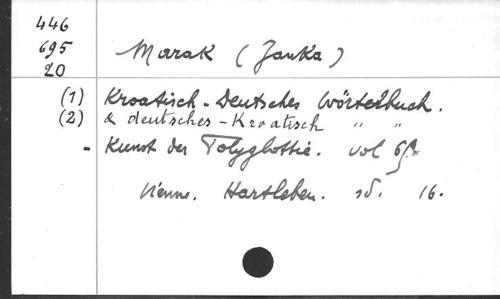 446
695
20
Marak (Janka)
(1) Kroatisch-Deutsches Wörterbuch.
(2) & deutsches-Kroatisch " "
- Kunst der Polyglottie. vol
Vienne. Hartleben. sd. 16.